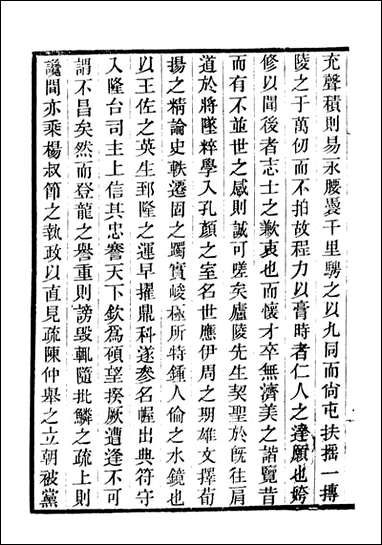 充聲積則易永腰褭千里騁之以九同而尙屯扶搖一摶
陵之于萬仞而不拍故程力以膏時者仁人之逢願也姱
修以閒後者志士之歎衷也而懷才卒無濟美之諧覽昔
而有不並世之感則誠可嗟矣廬陵先生契聖於旣往肩
道於將墜粹學入孔顏之室名世應伊周之期雄文擇荀
揚之精論史軼遷固之躅實峻極所特鍾人倫之水鏡也
以王佐之英生郅隆之運早擢鼎科遂參名幄出典符守
入隆台司主上信其忠謇天下欽為碩望揆厥遭逢不可
謂不昌矣然而登龍之譽重則謗毀輒隨批鱗之疏上則
讒間亦乘楊叔節之執政以直見疏陳仲舉之立朝被黨